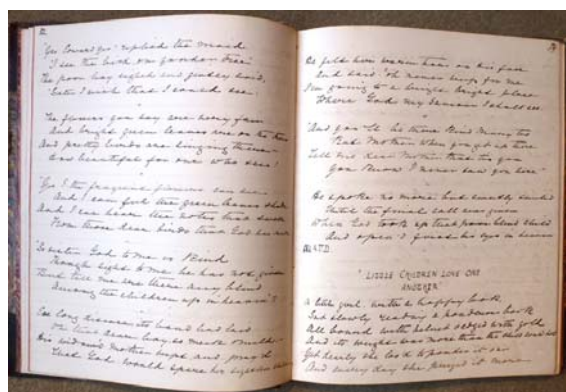 "Yes Edward yes" replied the maid
"I see the bird on yonder tree"
The poor boy sighed and gently said,
"Sister I wish that I could see"
The flowers you say are very fair
And bright green leaves are on the trees
And pretty birds are singing there
How beautiful for one who sees
"Yes I the fragrant flowers can
And I can feel the green leaves shade
And I can hear the notes that
From those dear birds that God has made
So sister God to me is kind
Though sight to me he has not given
But tell me are there any blind
Among the children up in heaven"?
Ere long disease its hand had laid
On that dear boy so meek & mild
His widow'd mother wept and pray'd
That God would spare her sightless child
He felt her warm tears on his face
And said "oh never weep for me
I'm going to a bright bright place
Where God my Saviour I shall see
And you'll be there Kind Mary too
But Mother when you get up there
Tell me dear Mother that tis you
You Know I never saw you here"
He spoke no more but sweetly smiled
Until the final call was given
When God took up that poor blind child
And open'd first his eyes in heaven
"LITTLE CHILDREN LOVE ONE
ANOTHER"
A little girl, with a happy look
Sat slowly reading a ponderous book
All bound with velvet & edged with gold
And its weight was more than the child could hold
Yet dearly she lov'd to ponder it o'er
And every day she prized it more